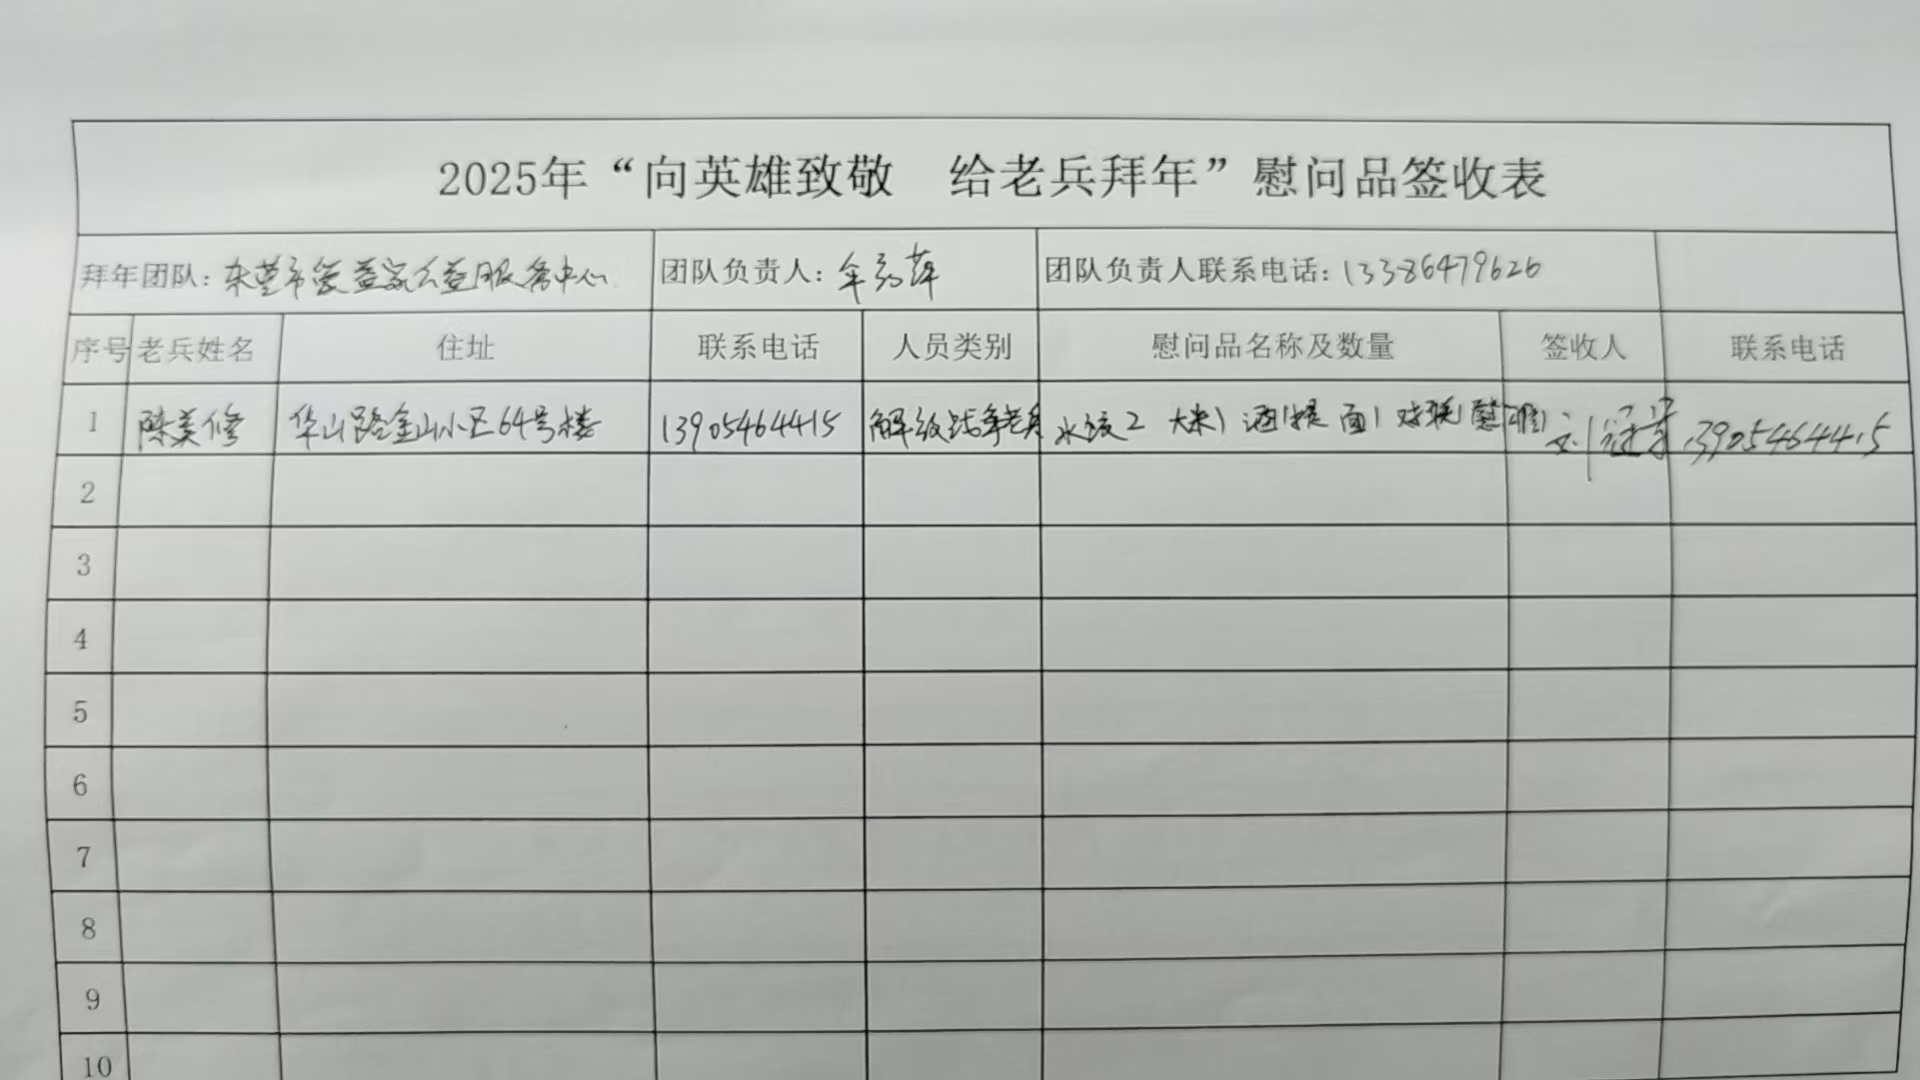 2025年“向英雄致敬 给老兵拜年”慰问品签收表
拜年团队：东营市爱益家公益服务中心 团队负责人： 团队负责人联系电话：13386479626
序号 老兵姓名 住址 联系电话 人员类别 慰问品名称及数量 签收人 联系电话
1 陈美修 华山路金山小区64号楼 13905464415 解放战争老兵 水饺2 大米1 酒1提 面1 对联1 刘 13905464415
2
3
4
5
6
7
8
9
10